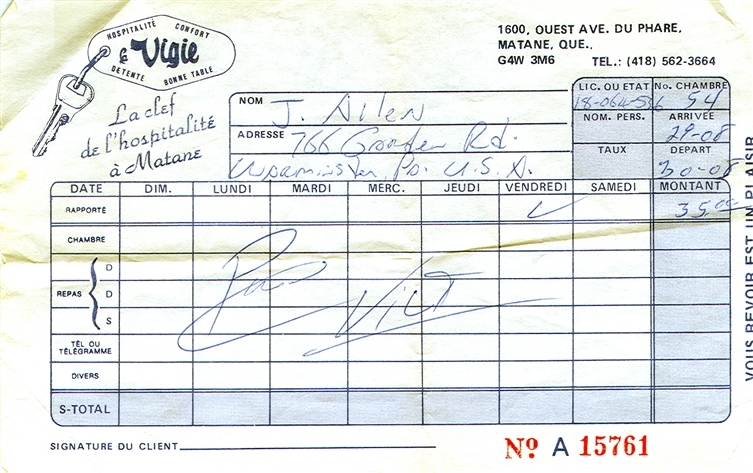 HOSPITALITÉ CONFORT
la Vigie
DÉTENTE BONNE TABLE
La clef
de l'hospitalité
à Matane
1600, OUEST AVE. DU PHARE,
MATANE, QUE.,
G4W 3M6 TEL.: (418) 562-3664
NOM J. Allen
ADRESSE 766 Rd.
Upominster, Pa. U.S.A.
LIC. OU ETAT No. CHAMBRE
18-064-586 54
NOM. PERS. ARRIVÉE
29-08
TAUX DEPART
30-08
DATE DIM. LUNDI MARDI MERC. JEUDI VENDREDI SAMEDI MONTANT
RAPPORTÉ ✓ 35.00
CHAMBRE
REPAS { D
D
S
TÉL OU
TÉLÉGRAMME
DIVERS
S-TOTAL
SIGNATURE DU CLIENT
Nº A 15761
VOUS REVOIR EST UN PLAISIR